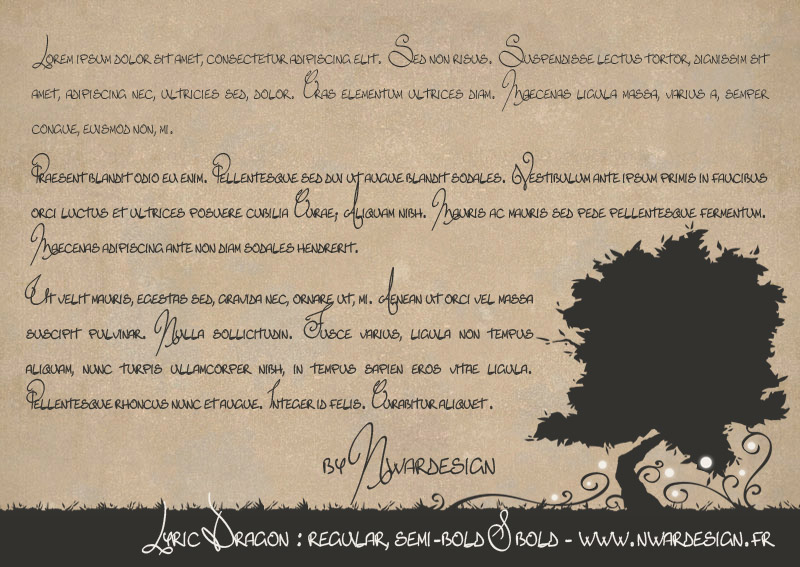 Lorem ipsum dolor sit amet, consectetur adipiscing elit. Sed non risus. Suspendisse lectus tortor, dignissim sit
amet, adipiscing nec, ultricies sed, dolor. Cras elementum ultrices diam. Maecenas ligula massa, varius a, semper
congue, euismod non, mi.
Praesent blandit odio eu enim. Pellentesque sed dui ut augue blandit sodales. Vestibulum ante ipsum primis in faucibus
orci luctus et ultrices posuere cubilia Curae; Aliquam nibh. Mauris ac mauris sed pede pellentesque fermentum.
Maecenas adipiscing ante non diam sodales hendrerit.
Ut velit mauris, egestas sed, gravida nec, ornare ut, mi. Aenean ut orci vel massa
suscipit pulvinar. Nulla sollicitudin. Fusce varius, ligula non tempus
aliquam, nunc turpis ullamcorper nibh, in tempus sapien eros vitae ligula.
Pellentesque rhoncus nunc et augue. Integer id felis. Curabitur aliquet.
by Nwardesign
Lyric Dragon : regular, semi-bold & bold - www.nwardesign.fr